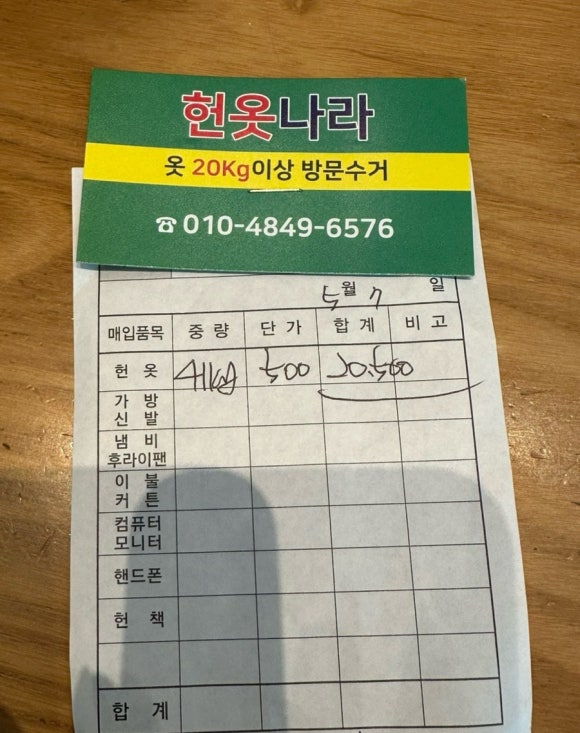 헌옷나라
옷 20Kg이상 방문수거
☎010-4849-6576
5월 7일
매입품목 중량 단가 합계 비고
헌 옷 41kg 500 20,500
가 방
신 발
냄 비
후라이팬
이 불
커 튼
컴퓨터
모니터
핸드폰
헌 책
합 계